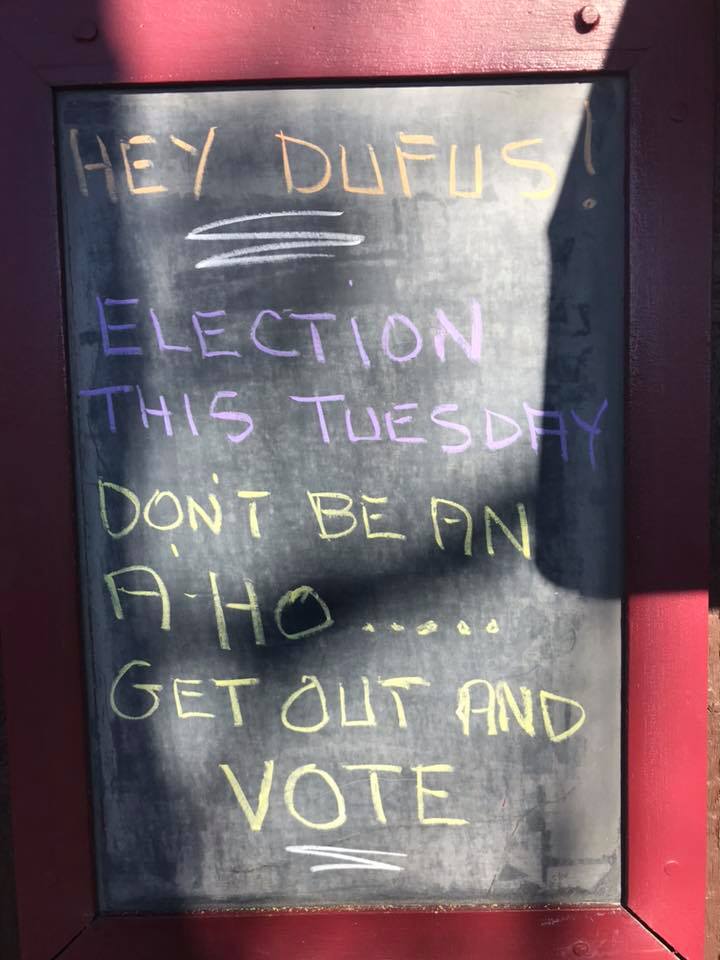 HEY DUFUS!
ELECTION
THIS TUESDAY
DON'T BE AN
A-HO.....
GET OUT AND
VOTE